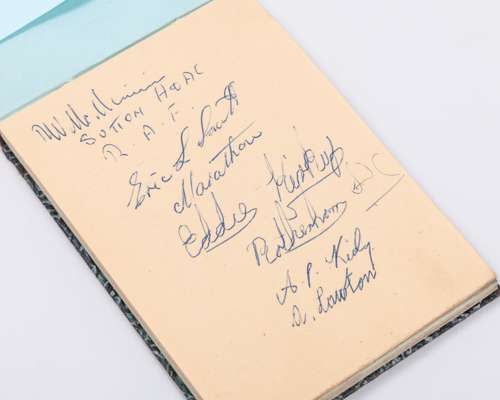 SUTTON H & AC
R. A. F.
Eric L Smith
Marathon
Eddie Kirkup
Rotherham
A. P. Kidy
A. Lawton